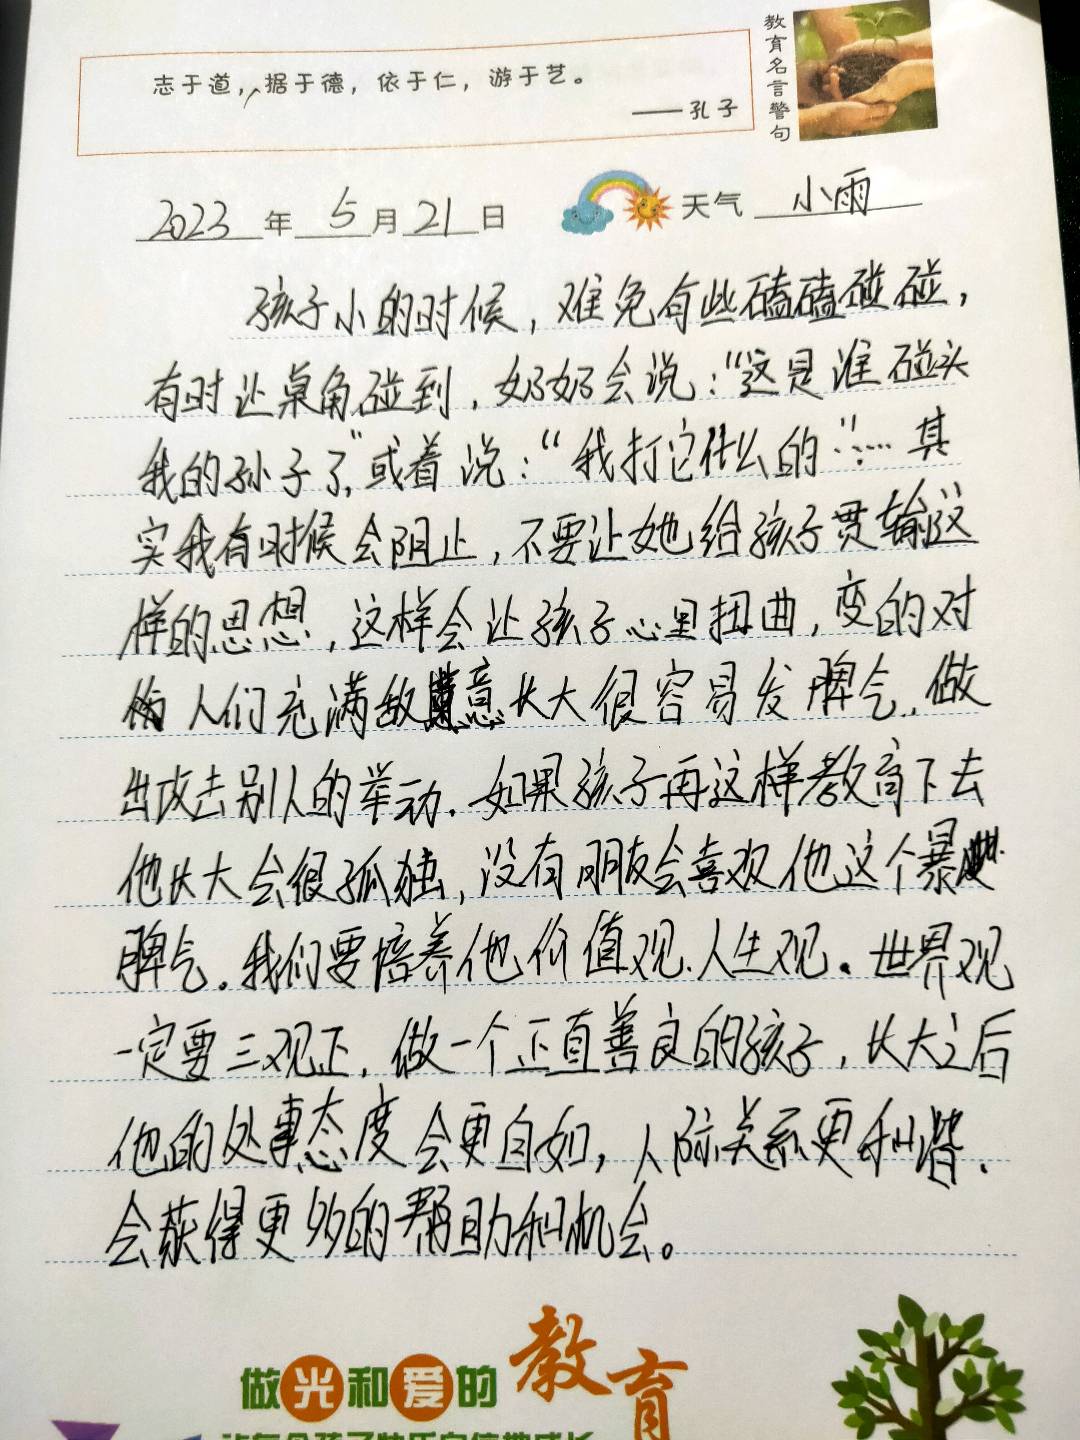 教育名言警句
志于道，据于德，依于仁，游于艺。
——孔子
2023年5月21日 天气 小雨
孩子小的时候，难免有些磕磕碰碰，
有时让桌角碰到，奶奶会说：“这是谁碰头
我的孙子了，”或着说：“我打它什么的”…… 其
实我有时候会阻止，不要让她给孩子贯输这
样的思想，这样会让孩子心里扭曲，变的对
人们充满敌意长大很容易发脾气，做
出攻击别人的举动．如果孩子再这样教育下去
他长大会很孤独，没有朋友会喜欢他这个暴
脾气。我们要培养他价值观、人生观。世界观
一定要三观正，做一个正直善良的孩子，长大之后
他的处事态度会更自如，人际关系更和谐．
会获得更多的帮助和机会。
做光和爱的教育